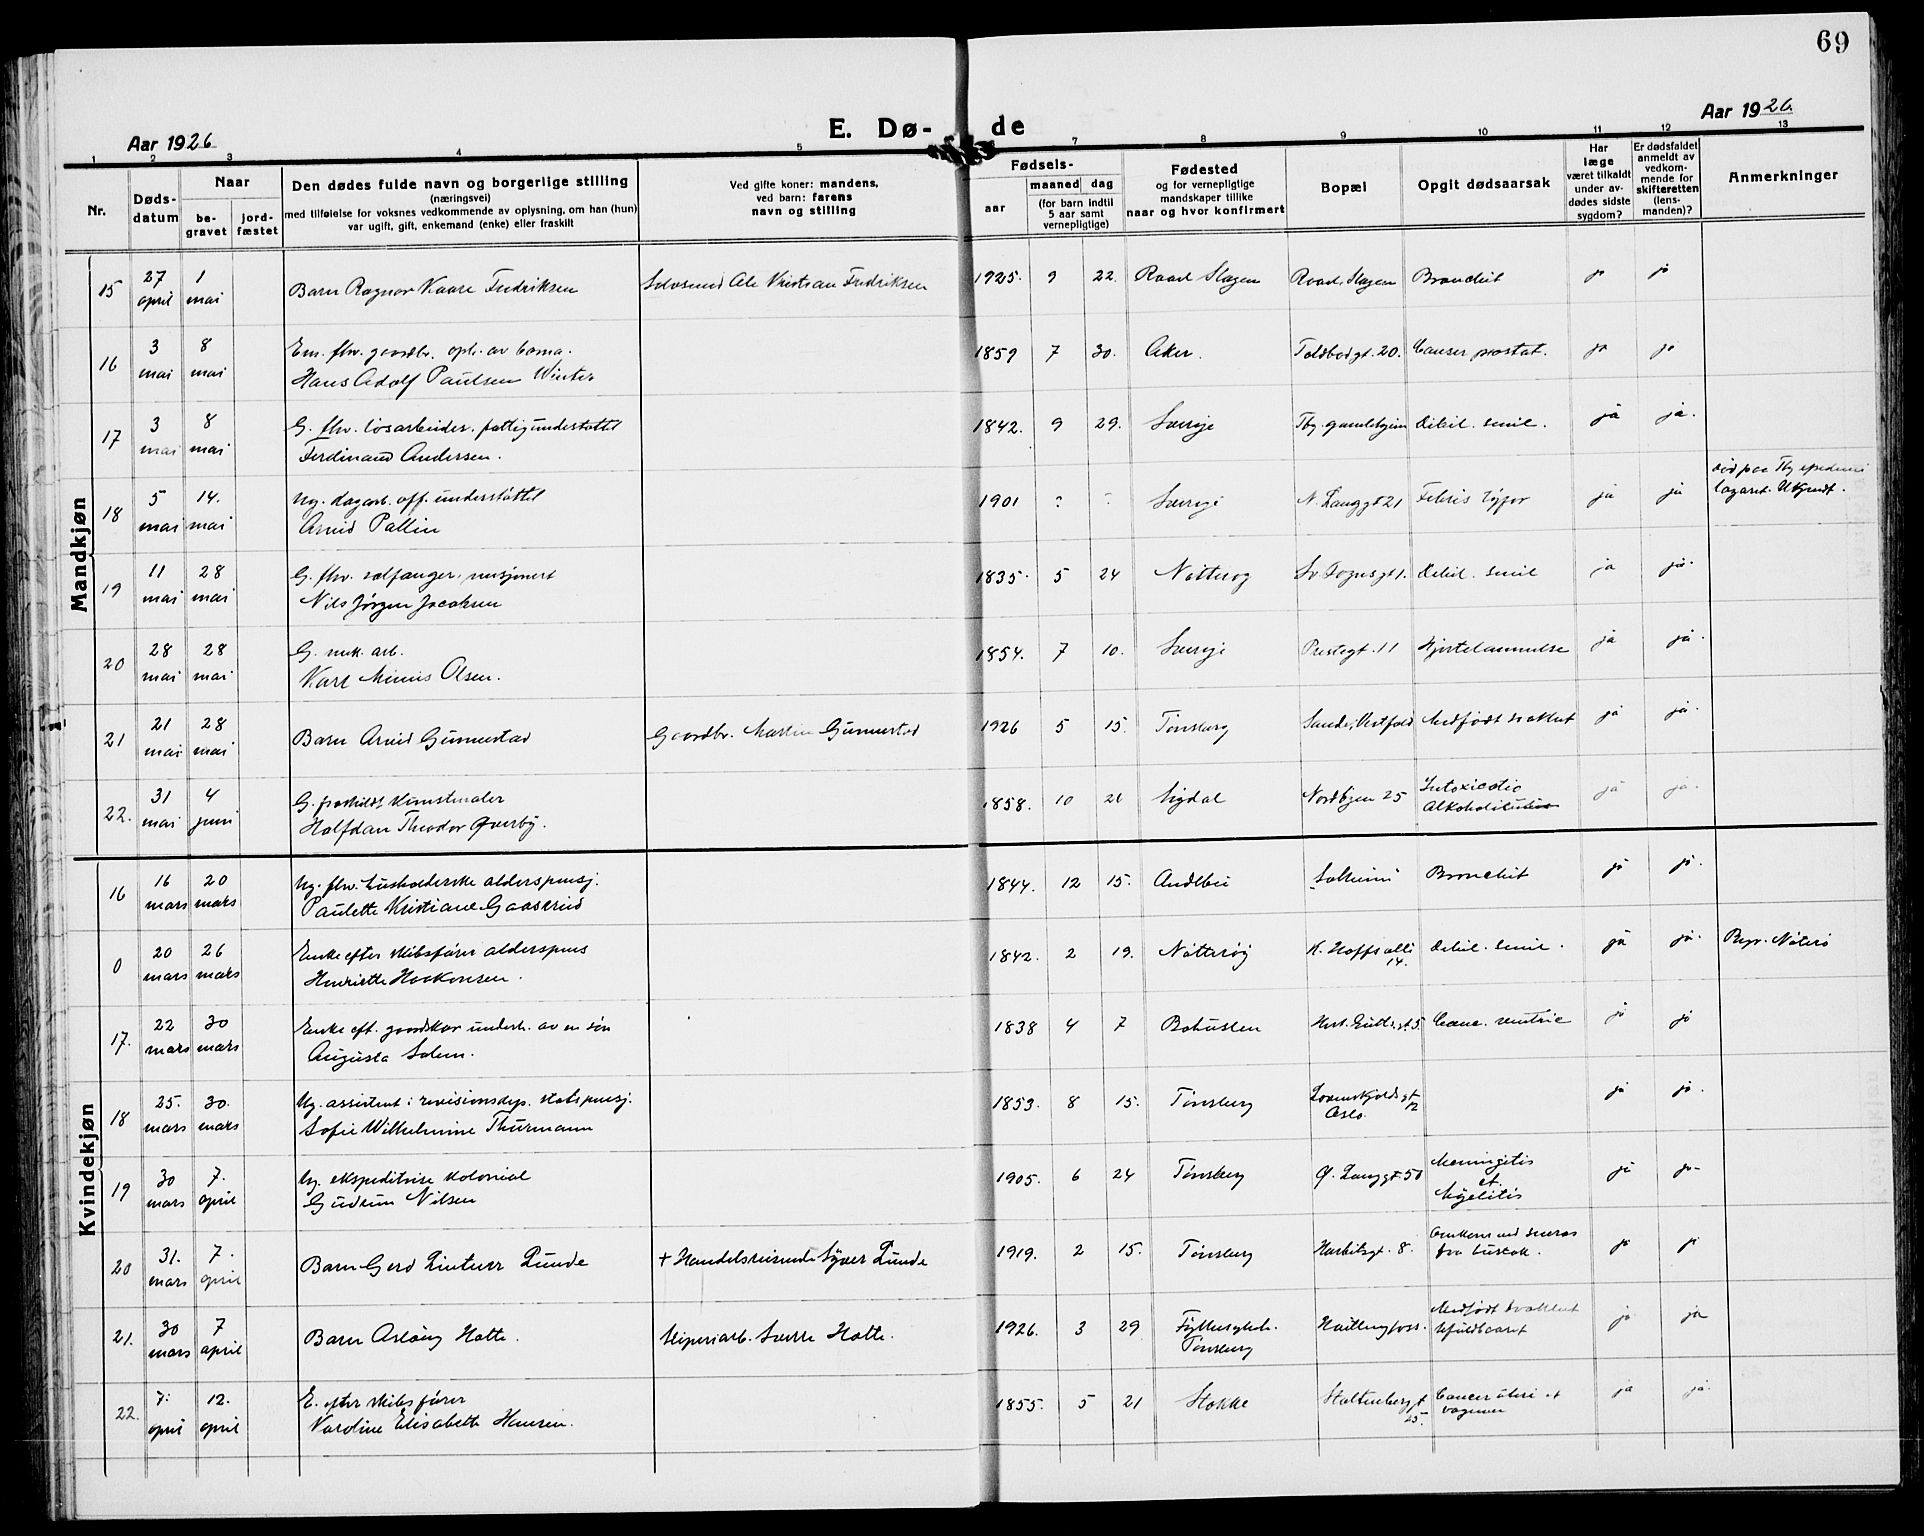 69
Aar 1926
E. Dø-
de
Aar 1926
1 2 3 4 5 7 8 9 10 11 12 13
Nr.
Døds-
datum
Naar
be-
gravet
jord-
fæstet
Den dødes fulde navn og borgerlige stilling
(næringsvei)
med tilføielse for voksnes vedkommende av oplysning, om han (hun)
var ugift, gift, enkemand (enke) eller fraskilt
Ved gifte koner: mandens,
ved barn: farens
navn og stilling
Fødsels-
aar
maaned dag
(for barn indtil
5 aar samt
vernepligtige)
Fødested
og for vernepligtige
mandskaper tillike
naar og hvor konfirmert
Bopæl
Opgit dødsaarsak
Har
læge
været tilkaldt
under av-
dødes sidste
sygdom?
Er dødsfaldet
anmeldt av
vedkom-
mende for
skifteretten
(lens-
manden)?
Anmerkninger
Mandkjøn
15 27 april 1 mai
Barn Ragnar Kaare Fredriksen
Ole Kristian Fredriksen
1925. 9 22. Slagen Slagen Bronchit ja ja
16 3 mai 8 mai
Em. fhv. gaardbr.
Hans Adolf Paulsen Winter
1859 7 30. Aker. Toldbodgt. 20. Cancer prostat. ja ja
17 3 mai 8 mai
G. fhv. løsarbeider. fattigunderstøttet
Ferdinand Andersen.
1842. 9 29. Sverige Tbg. gamlehjem Debil. senil. ja ja.
18 5 mai 14. mai
Ug. dagarb. off. understøttet
Arvid Pallin
1901 Sverige N. Langgt 21 Febris tyfor ja ja
død paa Tbg epidemi
lazaret.
19 11 mai 28 mai
G. fhv. pensjonert
Nils Jørgen Jacobsen
1835. 5 24 Nøtterøy Sv. Foynsgt 1. Debil. senil ja ja.
20 28 mai 28 mai
G. mek. arb.
Karl Olsen.
1854. 7 10. Sverige Prestegt. 11 Hjertelammelse ja ja.
21 21 mai 28 mai
Barn Arvid Gunnestad
Gaardbr. Martin Gunnestad
1926 5 15. Tønsberg Sande, Vestfold Medfødt svakhet ja ja.
22. 31 mai 4 juni
G. fraskildt kunstmaler
Halfdan Theodor Øverby.
1858. 10 Sigdal Nordbyen 25 Intoxicatio
ja ja.
Kvindekjøn
16 16 mars 20 mars
Ug. fhv. husholderske alderspensj.
Paulette Kristiane Gaaserud
1844. 12 15. Andebu Solheim Bronchit ja ja.
0 20 mars 26 mars
Enke efter skibsfører alderspens
Henriette Haakonsen.
1842. 2 19. Nøtterøy K. Hoffs alle
14.
Debil. senil. ja ja. Nøterø
17. 22 mars 30 mars
Enke eft. underh. av en søn
Augusta Solem.
1838 4 7 Bohuslen Canc. ventric ja ja
18 25. mars 30. mars
Ug. assistent i revisionsdep. statspensj.
Sofie Wilhelmine Thurmann
1853. 8 15. Tønsberg Løvenskjoldsgt
12
Oslo
ja ja.
19 30 mars 7. april
Ug. ekspeditrise kolonial
Gudrun Nilsen
1905. 6 24 Tønsberg Ø. Langgt 50 Meningitis
et.
Myelitis
ja ja
20 31. mars 7. april
Barn Gerd Lunde
+ Handelsreisende Syver Lunde
1919. 2 15. Tønsberg 8. ja ja
21. 30 mars 7 april
Barn Aslaug Hotte.
Sliperiarb. Sverre Hotte.
1926. 3 29 Fylkessykeh.
Tønsberg
Medfødt svakhet
ufuldbaaret
ja ja
22. 7. april 12. april
E. efter skibsfører
Karoline Elisabeth Hansen.
1855. 5 21 Stokke Stoltenbergt
25.
Cancer uteri et
vaginae
ja ja.